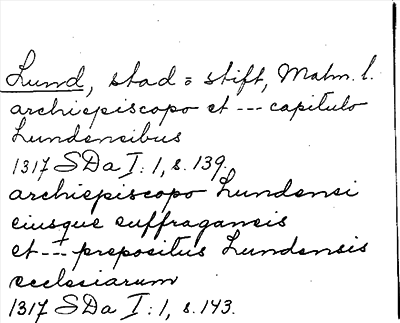 Lund, stad o stift, Malm. l.
archiepiscopo et --- capitulo
Lundensibus
1317 SDa I: 1, s. 139.
archiepiscopo Lundensi
eiusque suffraganeis
et --- prepositus Lundensis
ecclesiarum
1317 SDa I: 1, s. 143.